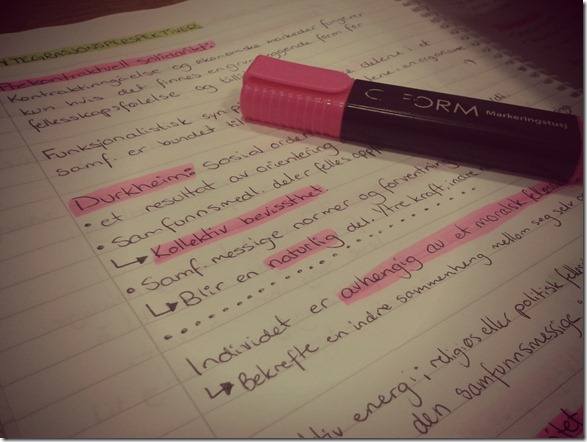 INTEGRASJONSPERSPEKTIVER
Prekontraktuell solidaritet
Kontraktinngåelse og økonomiske markeder fungerer
kun hvis det finnes en grunnleggende form for
fellesskapsfølelse og
Funksjonalistisk syn på
samf. er bundet til
Durkheim: Sosial orden
• et resultat av orientering
• Samfunnsmedl. deler felles
↳ Kollektiv bevissthet
• Samf. messige normer og forventninger
↳ Blir en naturlig del. Ytre kraft, indre
Individet er avhengig av et moralsk felles
↳ Bekrefte en indre sammenheng mellom seg selv og
energi; religiøs eller politisk
den samfunnsmessige
FORM Markeringstusj